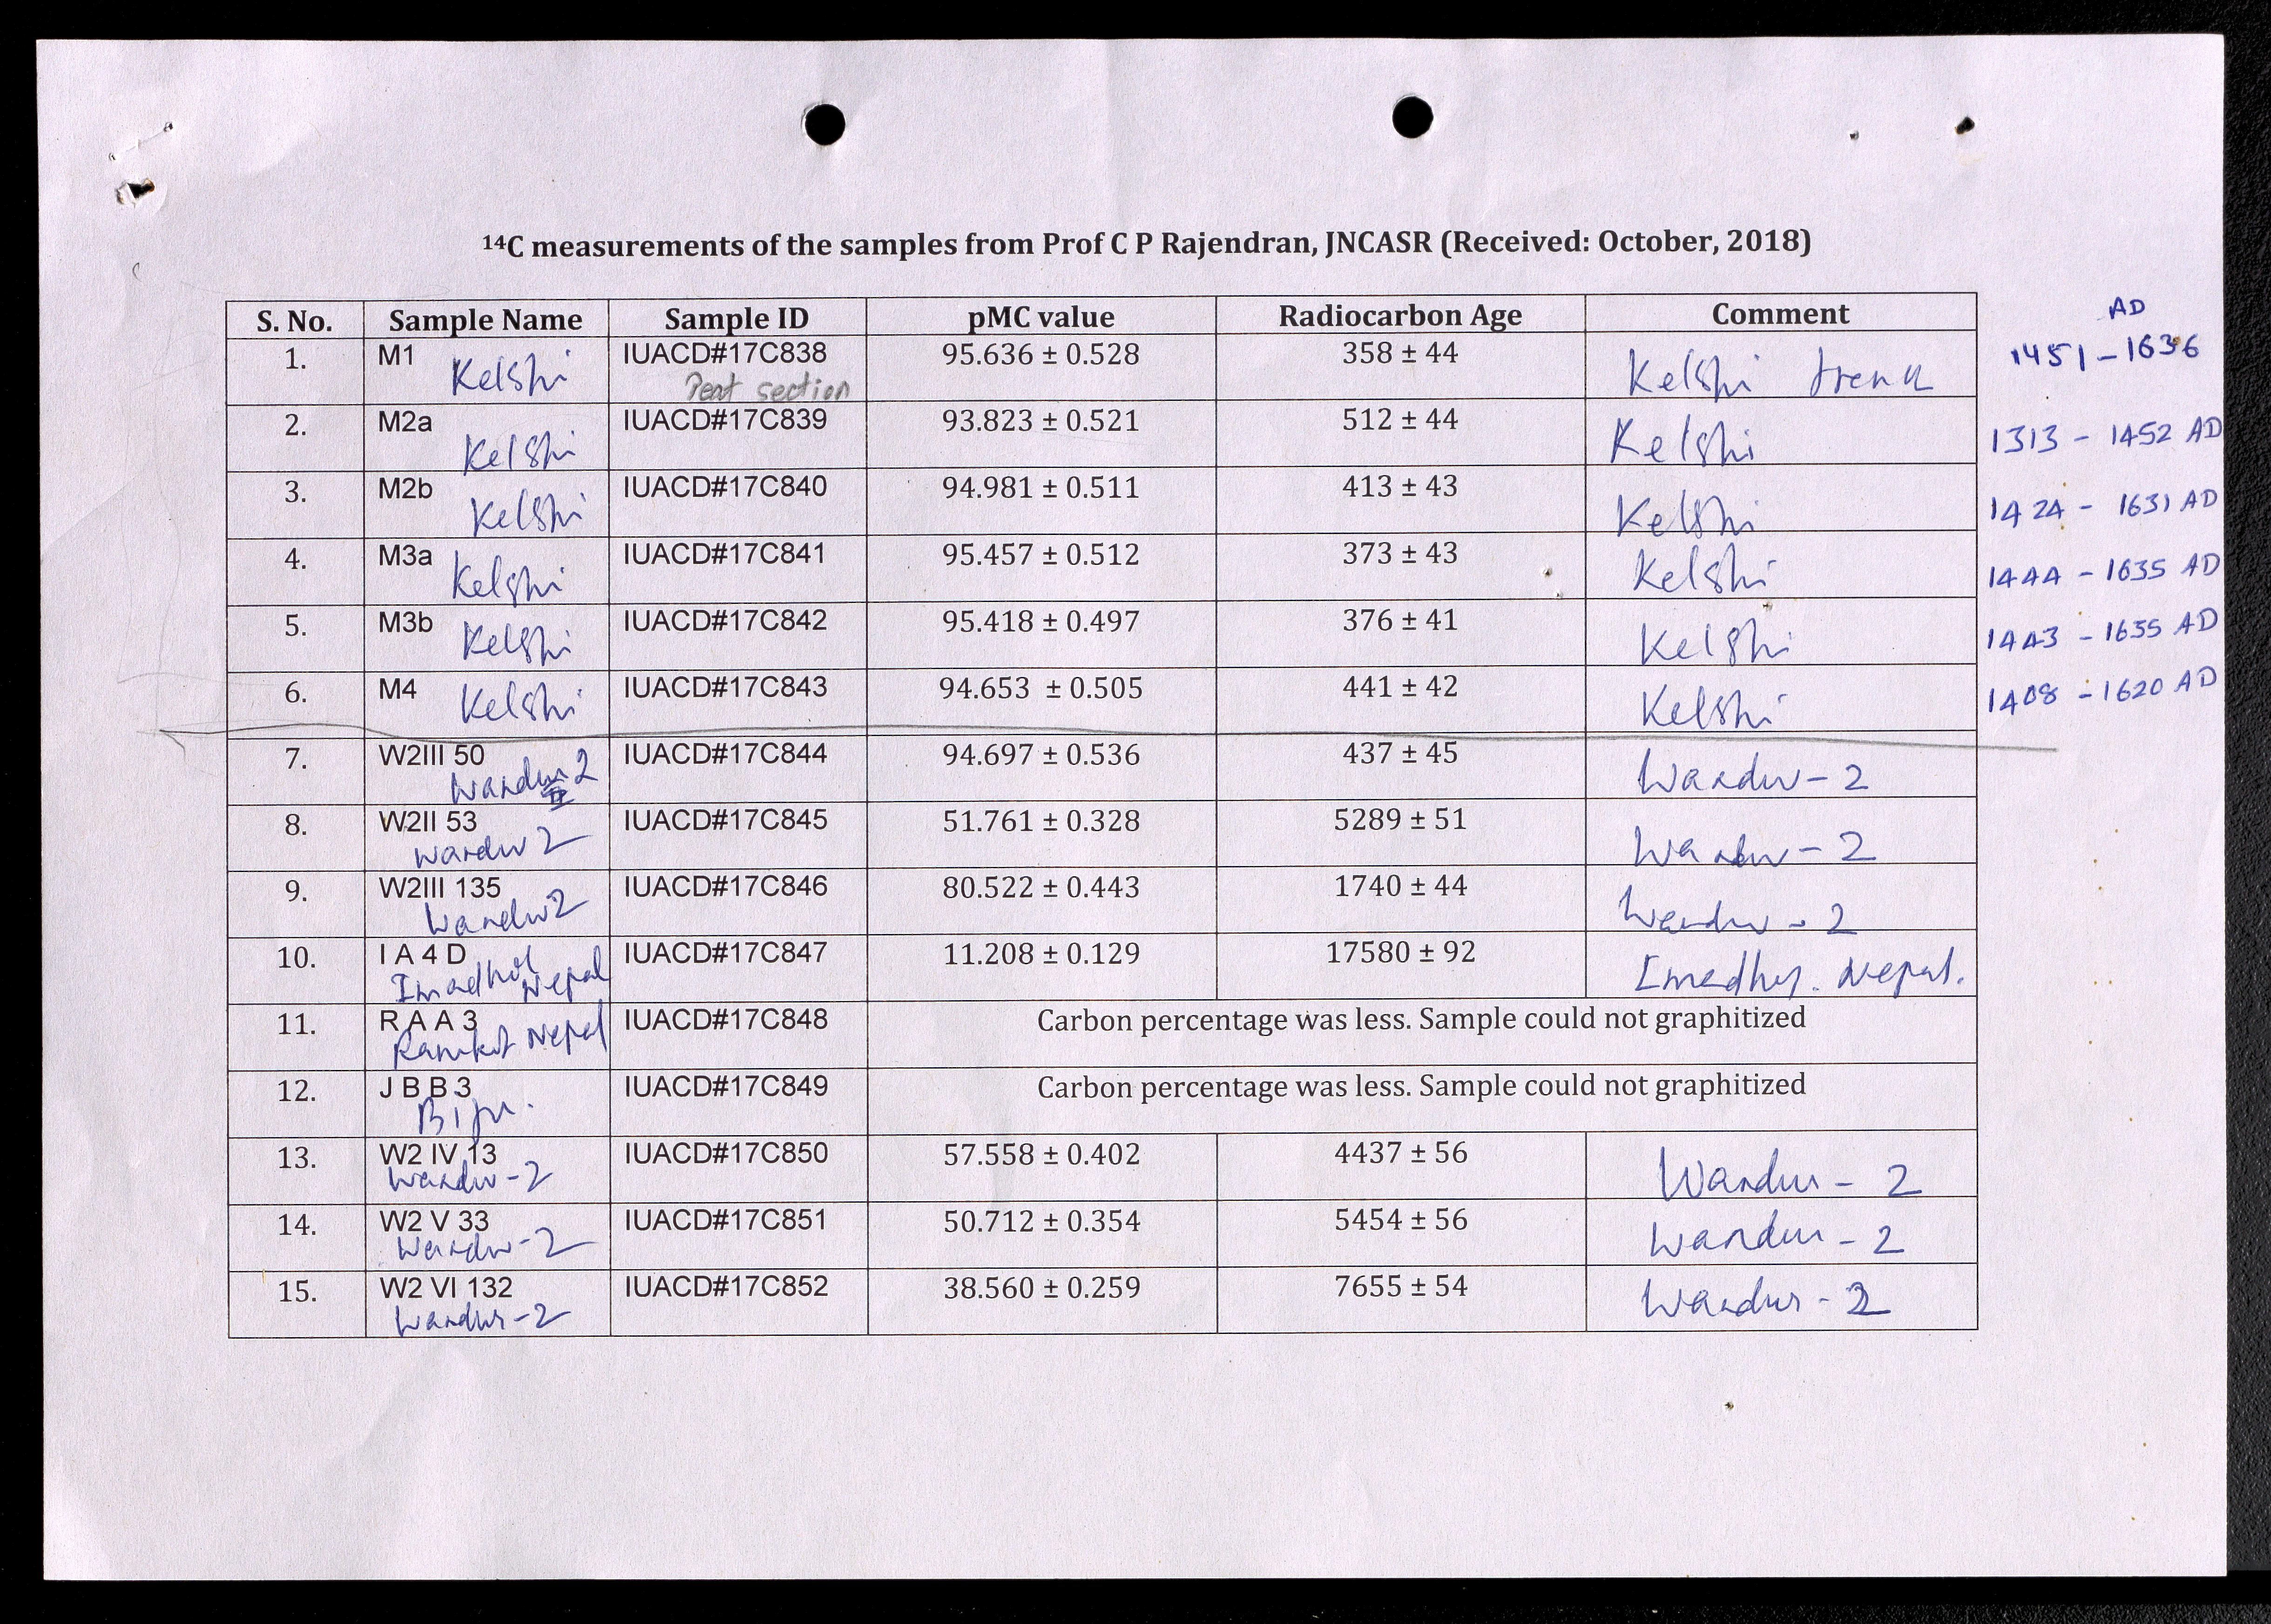 ¹⁴C measurements of the samples from Prof C P Rajendran, JNCASR (Received: October, 2018)
S. No. Sample Name Sample ID pMC value Radiocarbon Age Comment AD
1. M1 Kelshi IUACD#17C838 Peat section 95.636 ± 0.528 358 ± 44 Kelshi 1451 – 1636
2. M2a Kelshi IUACD#17C839 93.823 ± 0.521 512 ± 44 Kelshi 1313 – 1452 AD
3. M2b Kelshi IUACD#17C840 94.981 ± 0.511 413 ± 43 Kelshi 1424 – 1631 AD
4. M3a Kelshi IUACD#17C841 95.457 ± 0.512 373 ± 43 Kelshi 1444 – 1635 AD
5. M3b Kelshi IUACD#17C842 95.418 ± 0.497 376 ± 41 Kelshi 1443 – 1635 AD
6. M4 Kelshi IUACD#17C843 94.653 ± 0.505 441 ± 42 Kelshi 1408 – 1620 AD
7. W2III 50 Wandur 2 IUACD#17C844 94.697 ± 0.536 437 ± 45 Wandur – 2
8. W2II 53 Wandur 2 IUACD#17C845 51.761 ± 0.328 5289 ± 51 Wandur – 2
9. W2III 135 Wandur 2 IUACD#17C846 80.522 ± 0.443 1740 ± 44 Wandur – 2
10. I A 4 D Imadhol Nepal IUACD#17C847 11.208 ± 0.129 17580 ± 92 Nepal.
11. R A A 3 Ramkot Nepal IUACD#17C848 Carbon percentage was less. Sample could not graphitized
12. J B B 3 Biju. IUACD#17C849 Carbon percentage was less. Sample could not graphitized
13. W2 IV 13 Wandur – 2 IUACD#17C850 57.558 ± 0.402 4437 ± 56 Wandur – 2
14. W2 V 33 Wandur – 2 IUACD#17C851 50.712 ± 0.354 5454 ± 56 Wandur – 2
15. W2 VI 132 Wandur – 2 IUACD#17C852 38.560 ± 0.259 7655 ± 54 Wandur – 2